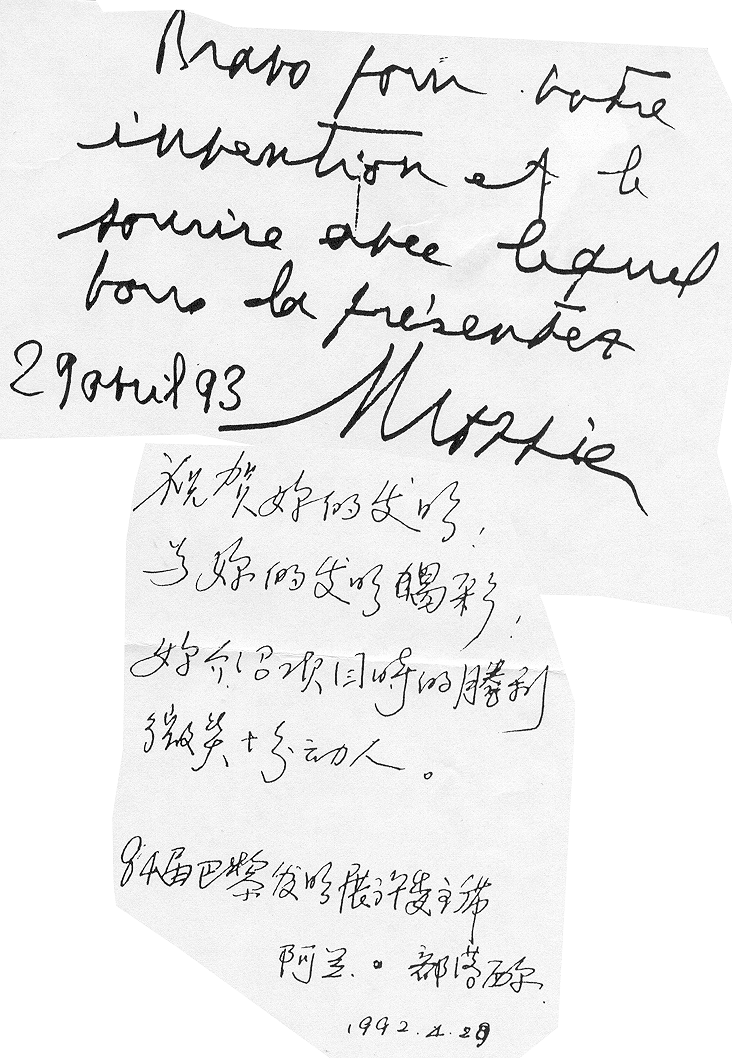 Bravo pour votre
invention et le
sourire avec lequel
vous la présentez
29 avril 93
祝贺妳的发明，
为妳的发明喝彩，
妳介绍项目时的胜利
微笑十分动人。
84届巴黎发明展评委主席
阿兰·部塔西尔
1992.4.29